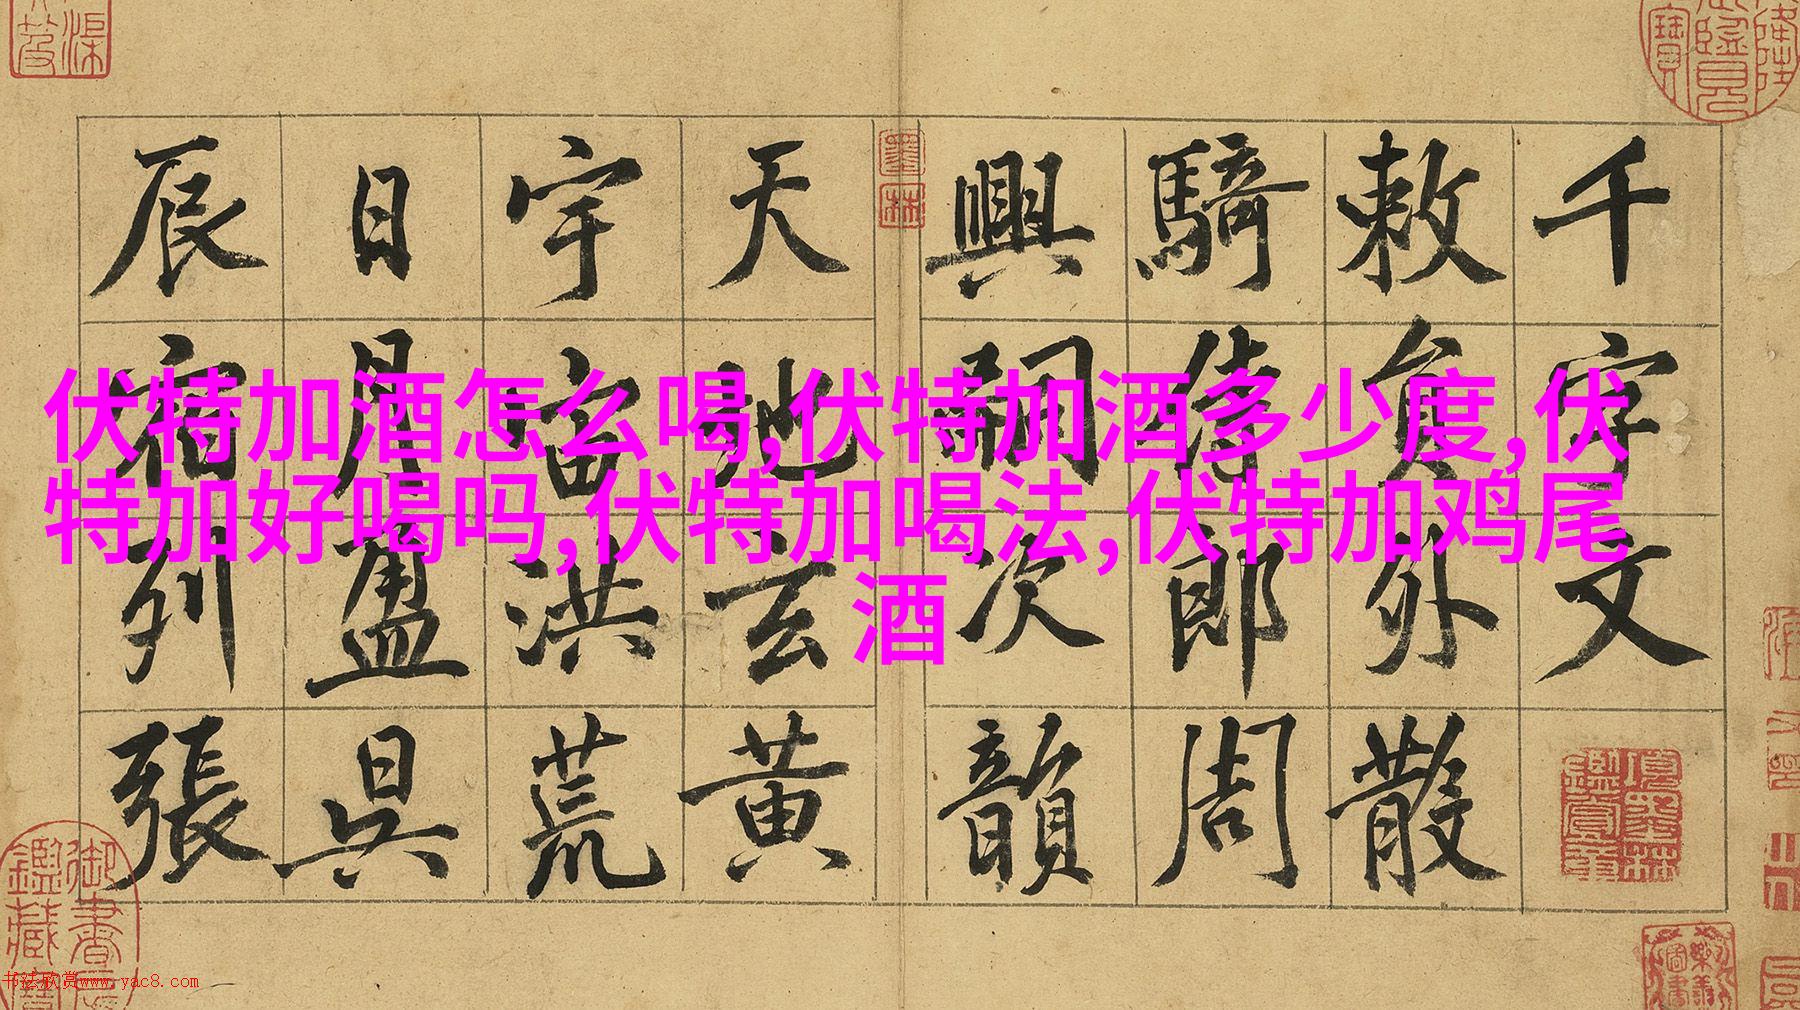 伏特加酒怎么喝,伏特加酒多少度,伏
特加好喝吗,伏特加喝法,伏特加鸡尾
酒
千字文
敕員外散
騎侍郎周
興嗣次韻
天地玄黄
宇宙洪荒
日月盈昃
辰宿列張
墨林
书法欣赏www.yac8.com